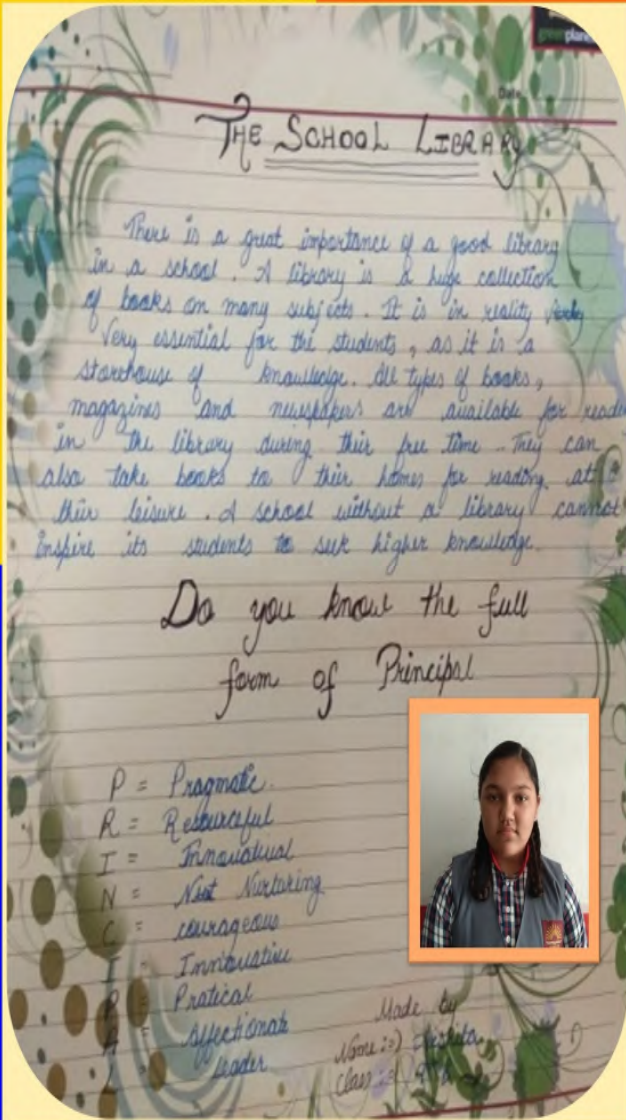 greenplane
Date
THE SCHOOL LIBRARY
There is a great importance of a good library
in a school. A library is a huge collection
of books on many subjects. It is in reality
very essential for the students, as it is a
storehouse of knowledge. All types of books,
magazines and newspapers are available for reade
in the library during their free time. They can
also take books to their homes for reading at
their leisure. A school without a library cannot
inspire its students to seek higher knowledge.
Do you know the full
form of Principal
P = Pragmatic.
R = Resourceful
I = Innovatival
N = Nurturing
C = courageous
I = Innovative
P = Pratical
A = Affectionate
Leader
Made by
Name :-)
Class :-)